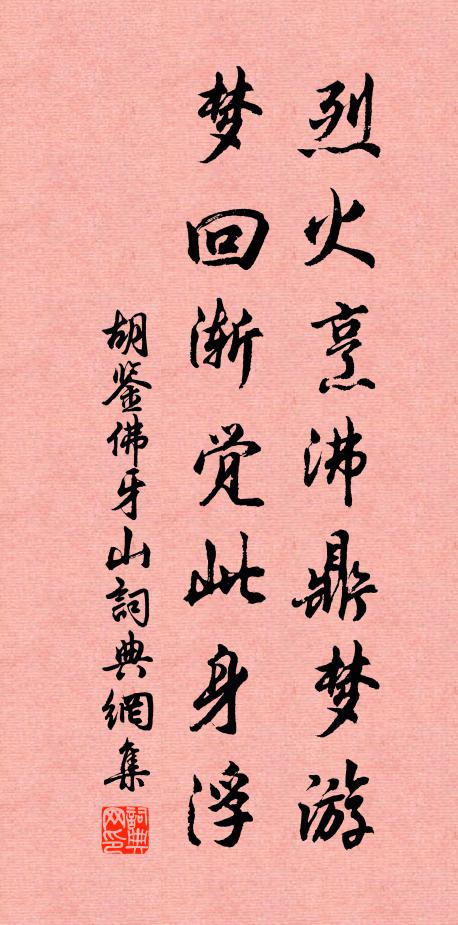 烈火烹沸鼎梦游
梦回渐觉此身浮
胡鉴佛牙山词典網集
詞典网印